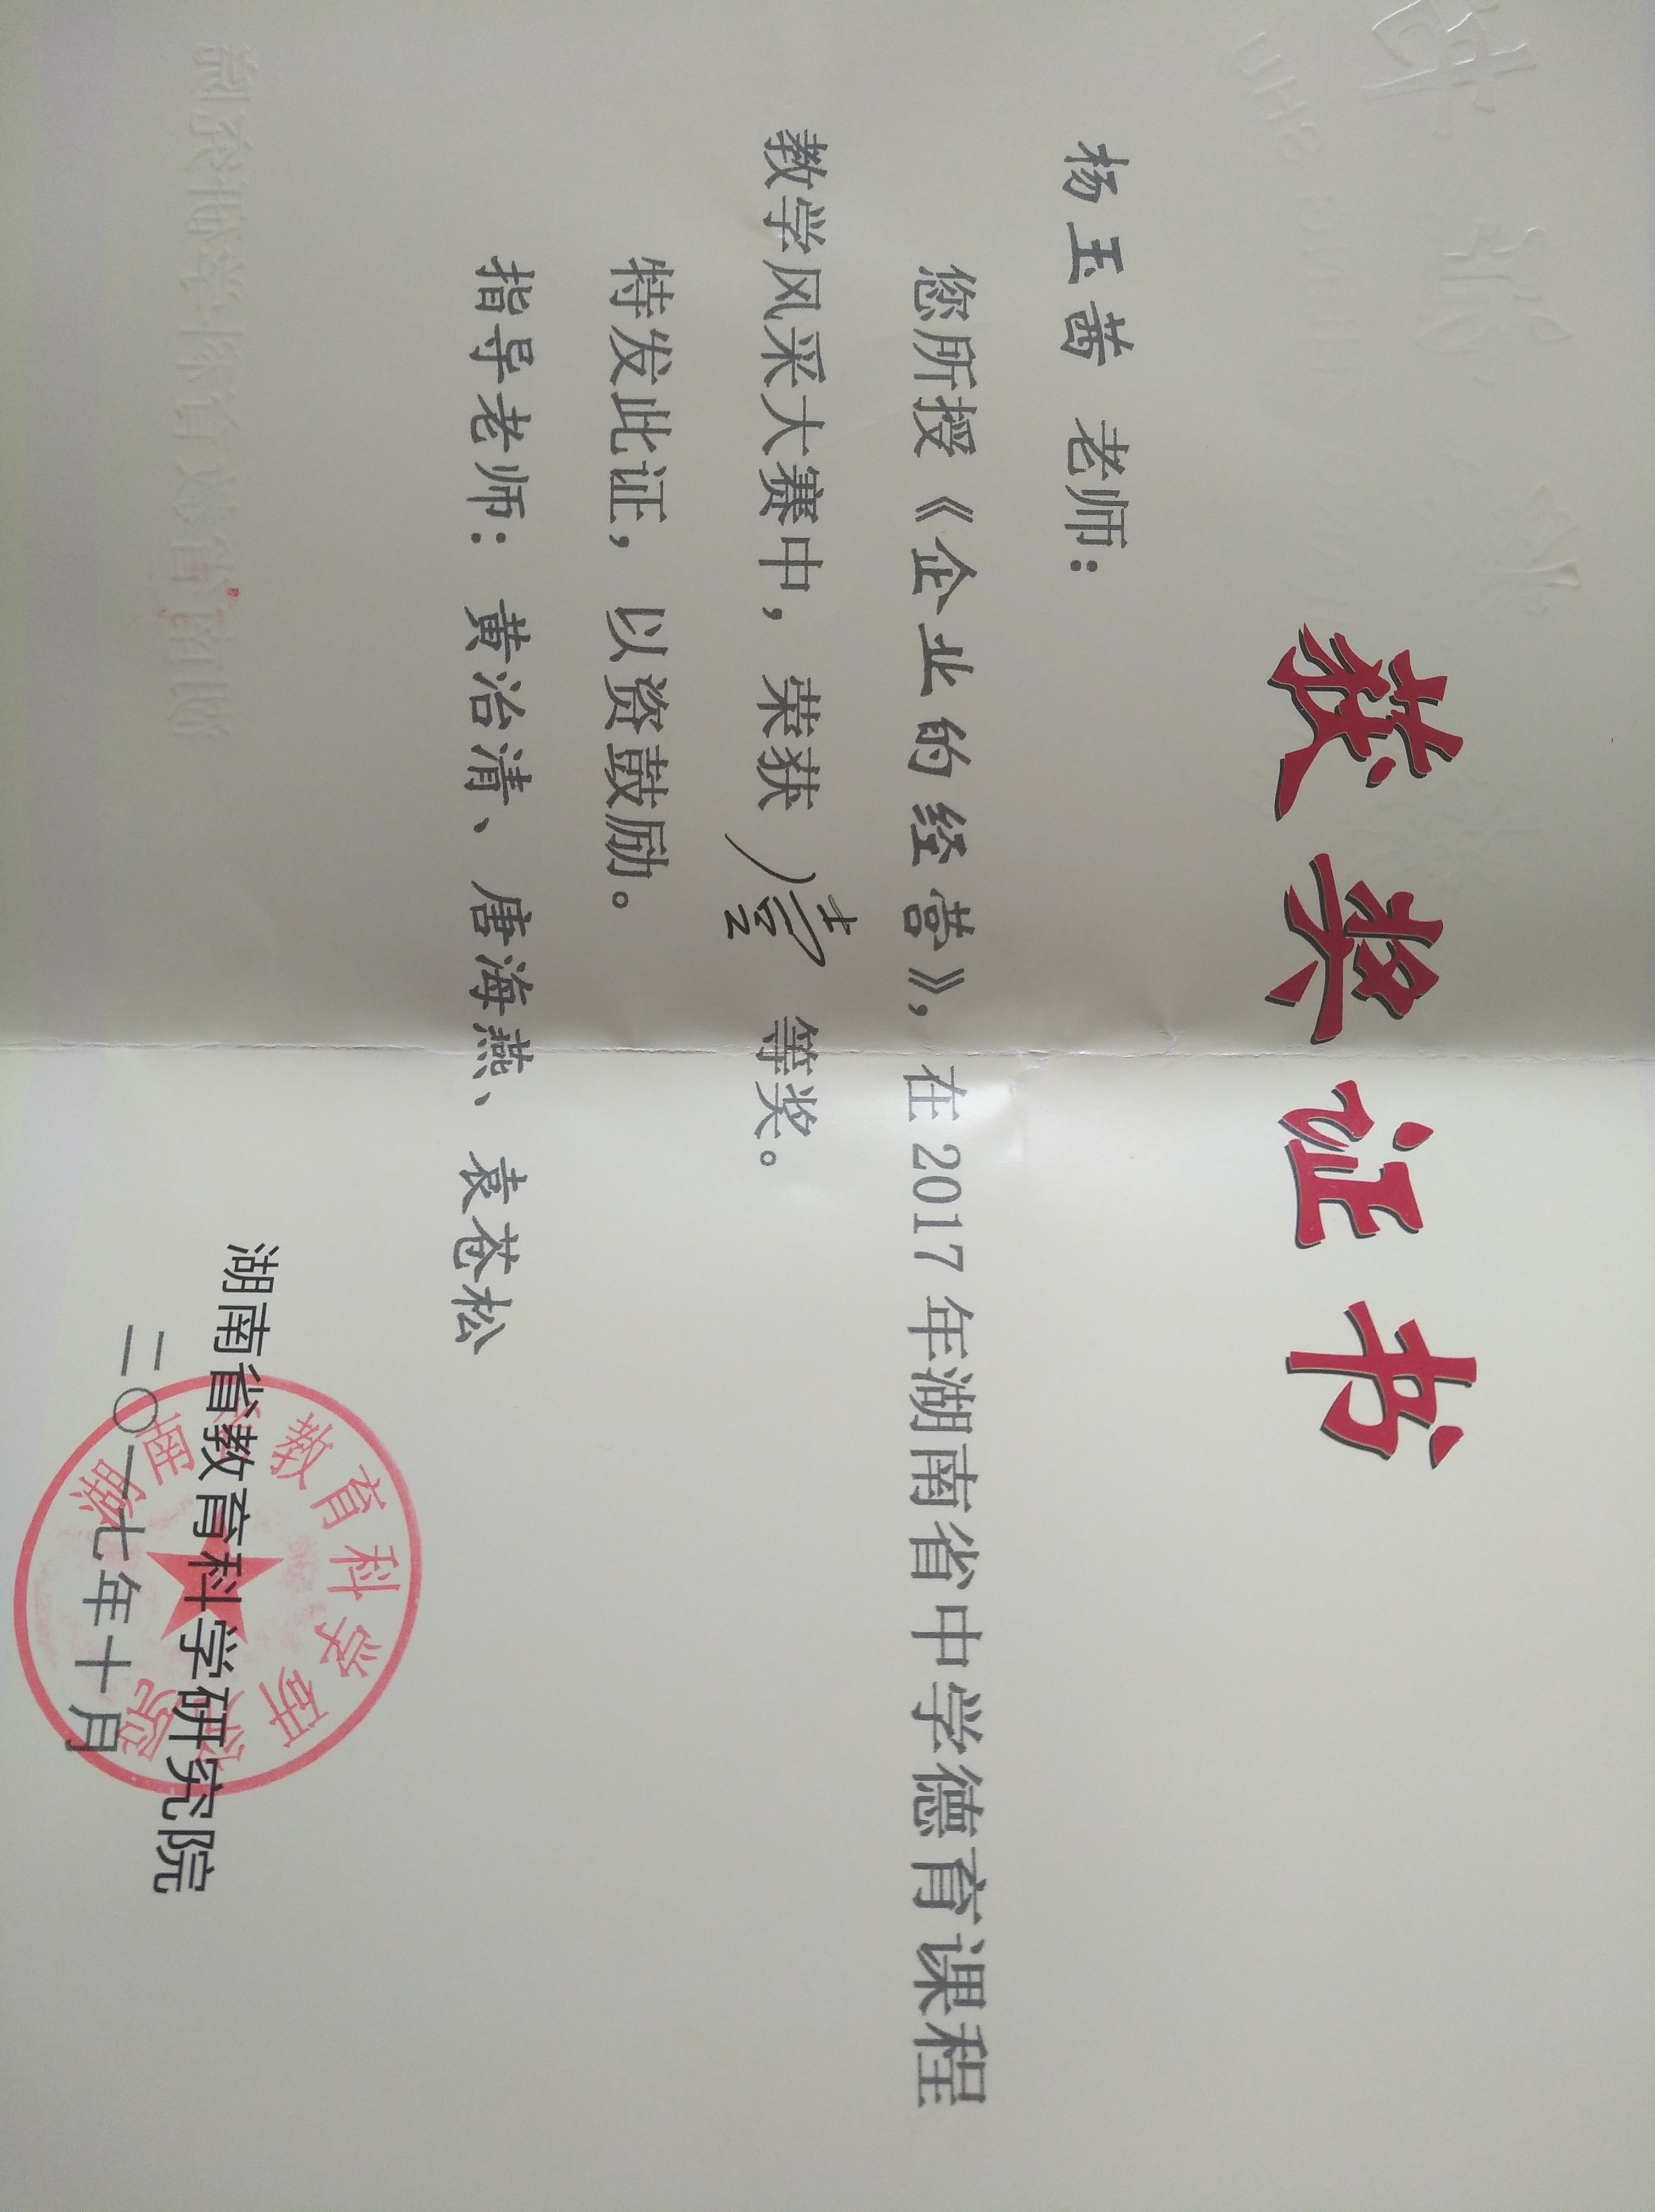 获奖证书
杨玉茜 老师：
您所授《企业的经营》，在2017年湖南省中学德育课程
教学风采大赛中，荣获 壹 等奖。
特发此证，以资鼓励。
指导老师：黄治清、唐海燕、袁苍松
湖南省教育科学研究院
二〇一七年十月
湖南省教育科学研究院